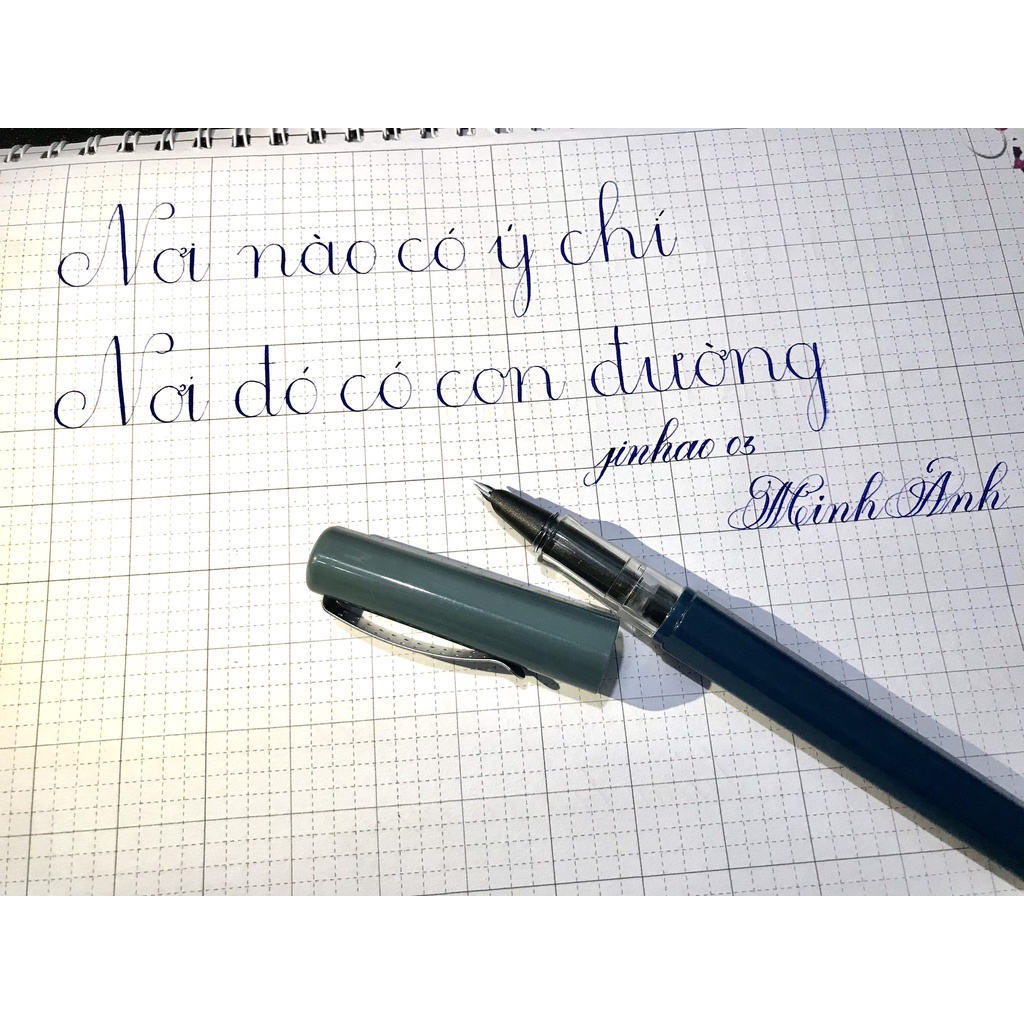 Nơi nào có ý chí
Nơi đó có con đường
jinhao 03
Minh Anh